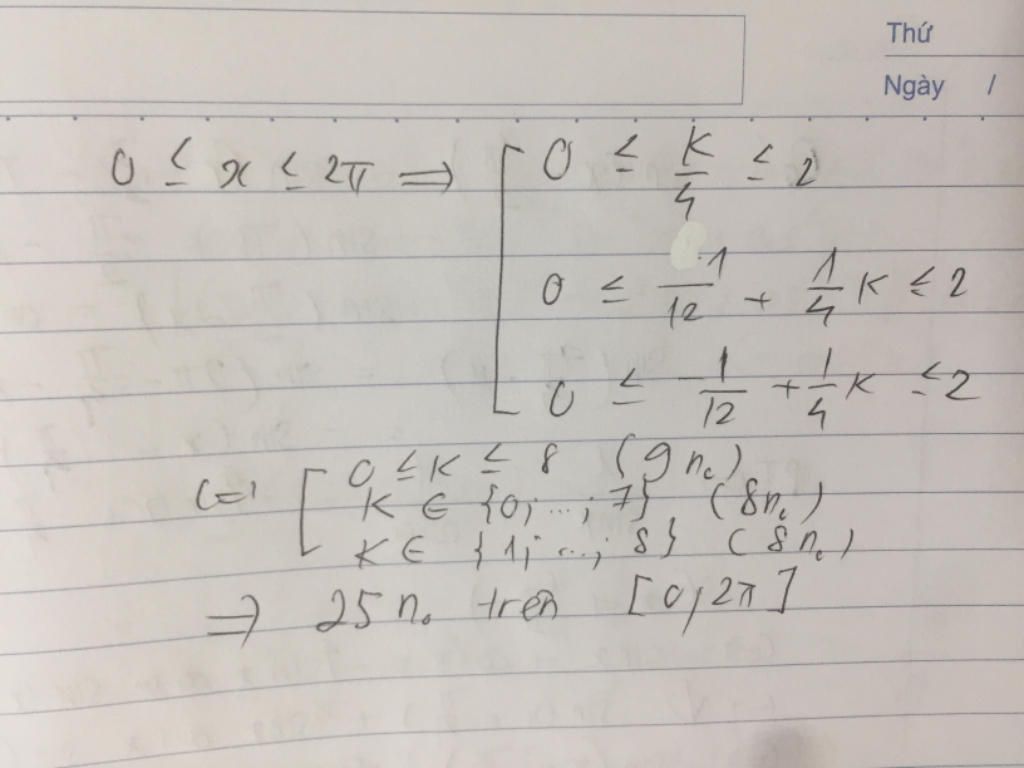 Thứ
Ngày /
0 ≤ x ≤ 2π ⇒ [ 0 ≤ K/4 ≤ 2
0 ≤ 1/12 + 1/4 K ≤ 2
0 ≤ -1/12 + 1/4 K ≤ 2
(=) [ 0 ≤ K ≤ 8 (9 no)
K ∈ {0; ...; 7} (8 no)
K ∈ {1; ...; 8} (8 no)
⇒ 25 no trên [0, 2π]